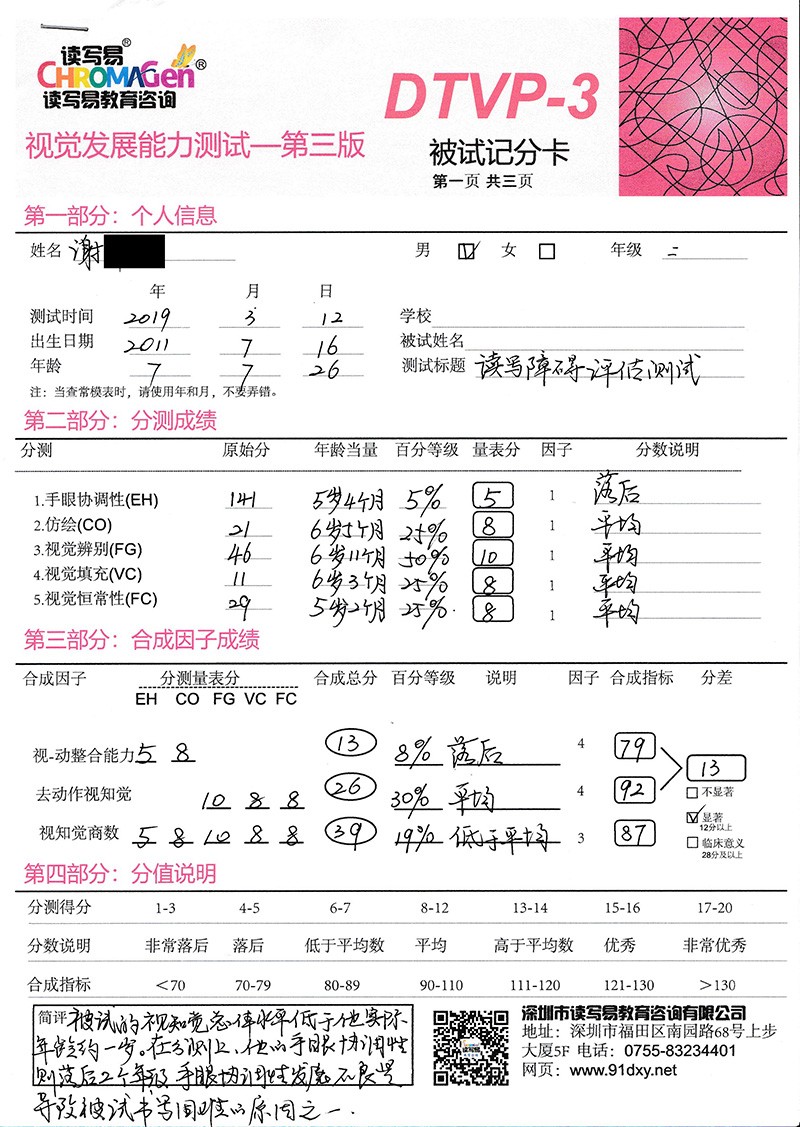 读写易®
CHROMAGen®
读写易教育咨询
DTVP-3
视觉发展能力测试—第三版
被试记分卡
第一页 共三页
第一部分：个人信息
姓名 谢 男 ☑ 女 □ 年级 二
年 月 日
测试时间 2019 3 12 学校
出生日期 2011 7 16 被试姓名
年龄 7 7 26 测试标题 读写障碍评估测试
注：当查常模表时，请使用年和月，不要弄错。
第二部分：分测成绩
分测 原始分 年龄当量 百分等级 量表分 因子 分数说明
1.手眼协调性(EH) 141 5岁4个月 5% 5 1 落后
2.仿绘(CO) 21 6岁5个月 25% 8 1 平均
3.视觉辨别(FG) 46 6岁11个月 50% 10 1 平均
4.视觉填充(VC) 11 6岁3个月 25% 8 1 平均
5.视觉恒常性(FC) 29 5岁2个月 25% 8 1 平均
第三部分：合成因子成绩
合成因子 分测量表分 合成总分 百分等级 说明 因子 合成指标 分差
EH CO FG VC FC
视-动整合能力 5 8 13 8% 落后 4 79
13
去动作视知觉 10 8 8 26 30% 平均 4 92
□ 不显著
☑ 显著
12分以上
视知觉商数 5 8 10 8 8 39 19% 低于平均 3 87
□ 临床意义
28分及以上
第四部分：分值说明
分测得分 1-3 4-5 6-7 8-12 13-14 15-16 17-20
分数说明 非常落后 落后 低于平均数 平均 高于平均数 优秀 非常优秀
合成指标 <70 70-79 80-89 90-110 111-120 121-130 >130
简评 被试的视知觉总体水平低于他实际
年龄约一岁。在分测上，他的手眼协调性
则落后2个年级 手眼协调性发展不良是
导致被试书写困难的原因之一.
深圳市读写易教育咨询有限公司
地址：深圳市福田区南园路68号上步
大厦5F 电话：0755-83234401
网页：www.91dxy.net